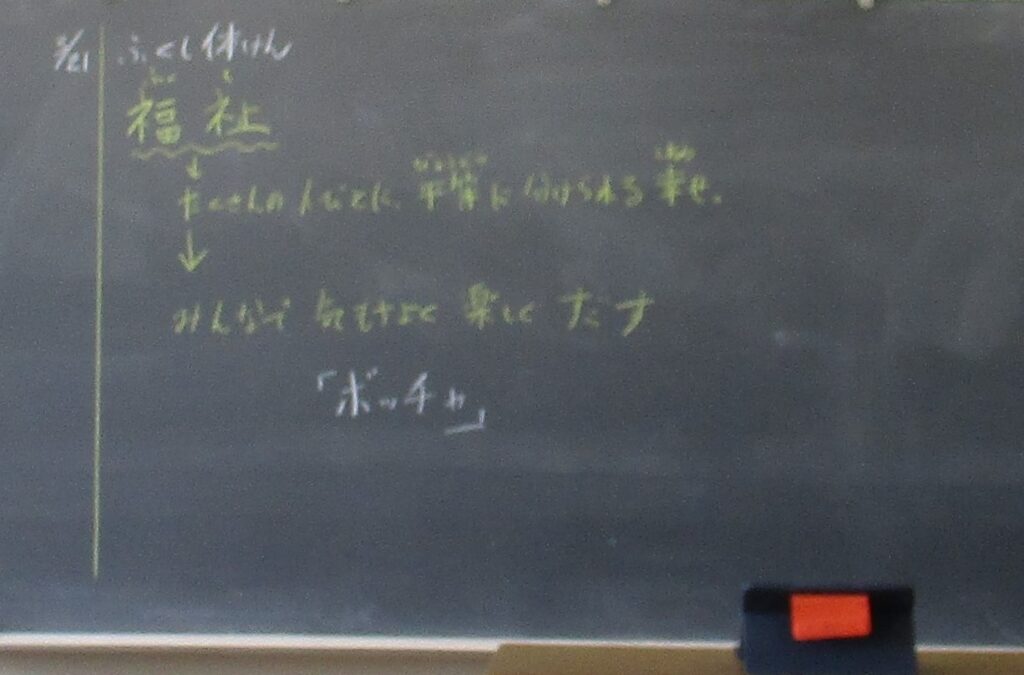 /21 ふくし体けん
福祉
↓
たくさんの人びとに 平等に 分けられる 幸せ。
↓
みんなで 気もちよく 楽しく
「ボッチャ」